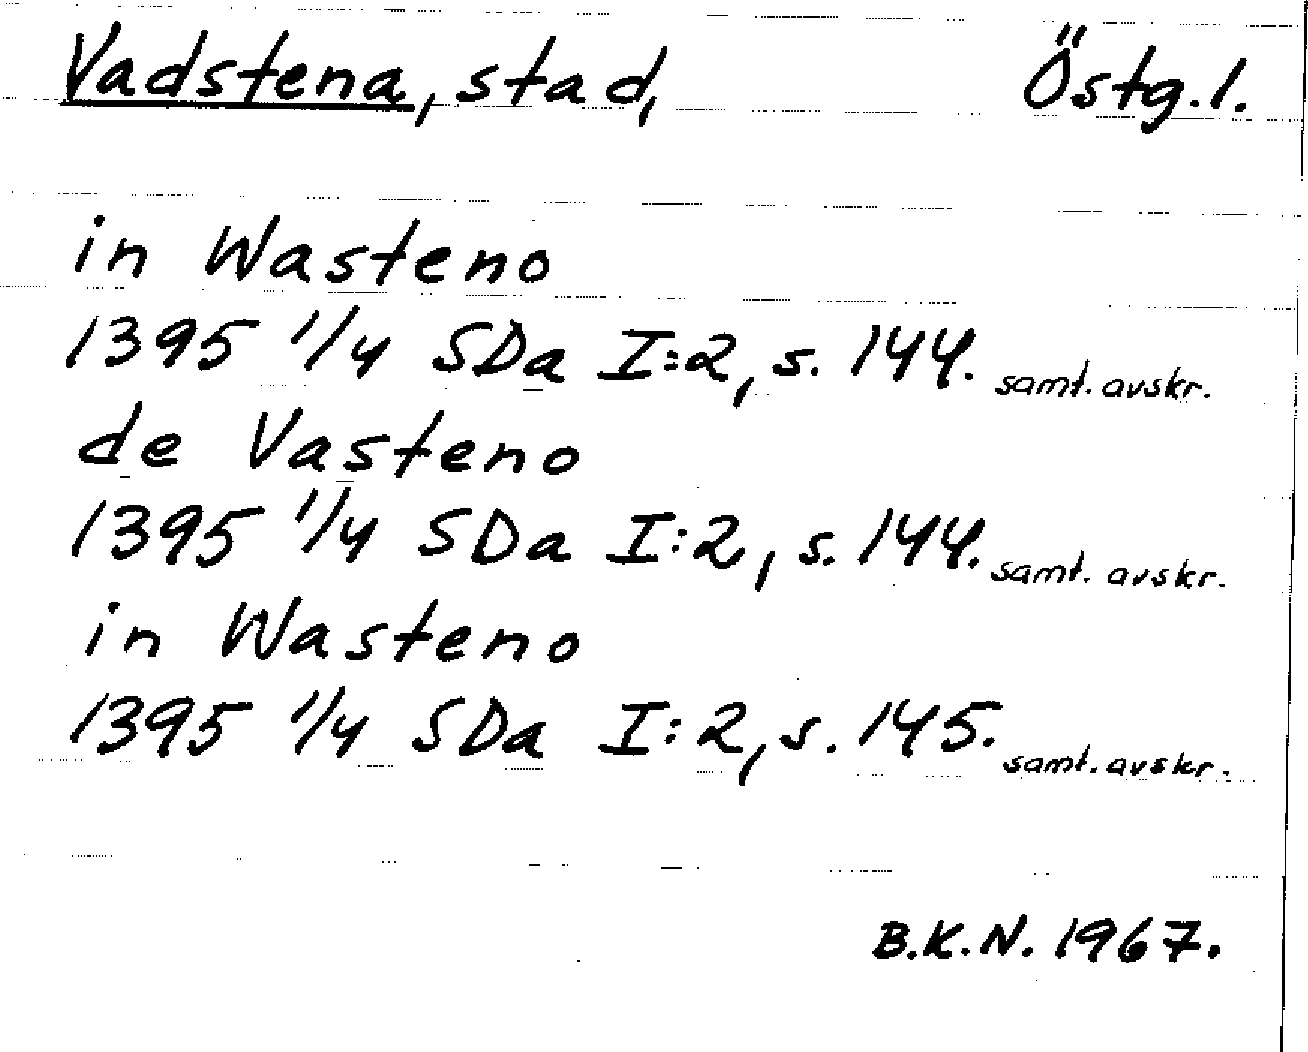 Vadstena, stad, Östg.l.
in Wasteno
1395 1/4 SDa I:2, s. 144. samt. avskr.
de Vasteno
1395 1/4 SDa I:2, s. 144. samt. avskr.
in Wasteno
1395 1/4 SDa I:2, s. 145. samt. avskr.
B.K.N. 1967.